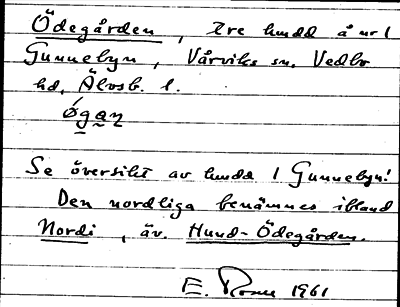 Ödegården, tre hmdd å nr 1
Gunnebyn, Vårviks sn. Vedbo
hd, Älvsb. l.
ø̀gaɳ
Se översikt av hmdd 1 Gunnebyn!
Den nordliga benämnes ibland
Nordi, äv. Hund-Ödegården.
E. 1961